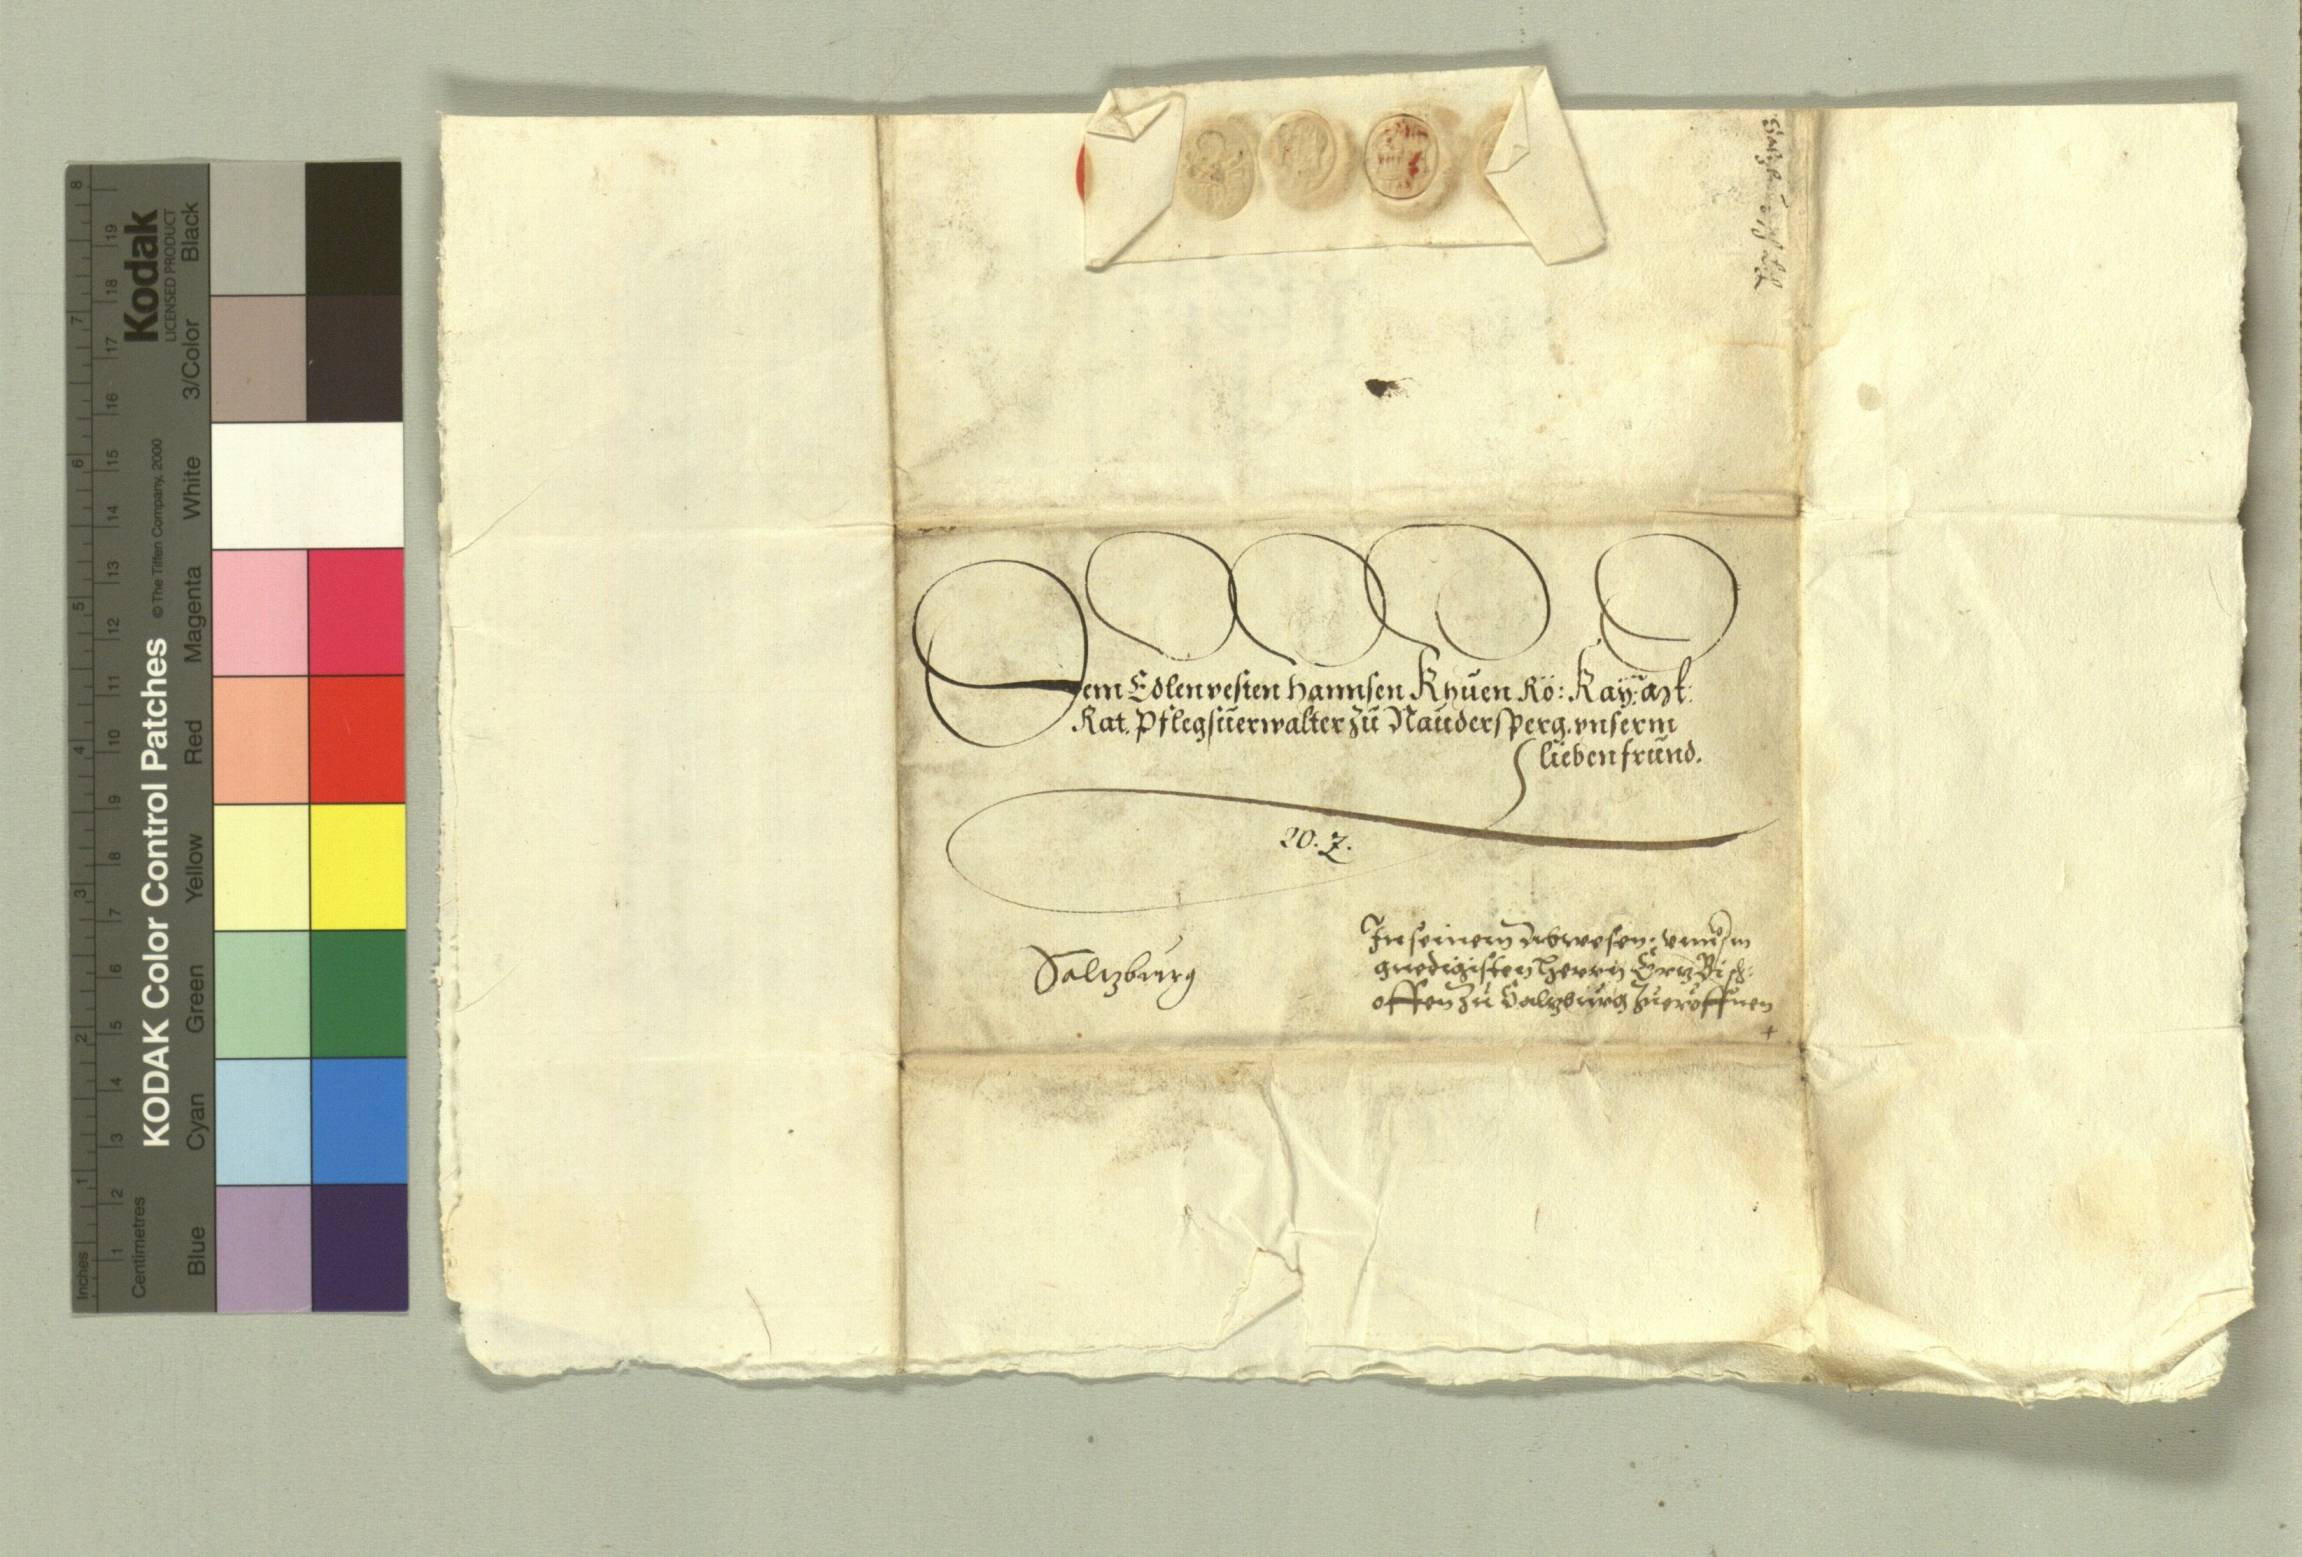 8
7
6
5
4
3
2
1
Inches
19
18
17
16
15
14
13
12
11
10
9
8
7
6
5
4
3
2
1
Centimetres
KODAK Color Control Patches
© The Tiffen Company, 2000
Kodak
LICENSED PRODUCT
Blue
Cyan
Green
Yellow
Red
Magenta
White
3/Color
Black
Dem Edlen vesten Hannsen Khuen Rö: Kay: Mt:
Rat. Pflegsuerwalter zu Naudersperg. vnserm
lieben freund.
20. Z.
Saltzburg
In seinem Abwesen:
gnedigisten Herrn Ertzbisch:
offen zu Saltzburg zueröffnen